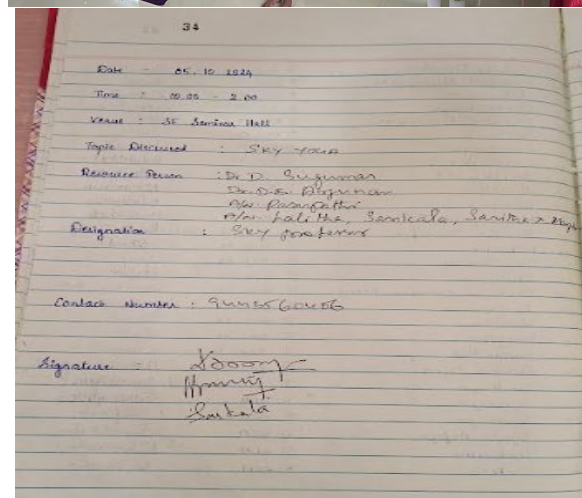 34
Date - 05.10 2024
Time : 00.00 - 2.00
Venue : SE Seminar Hall
Topic Discussed : SKY YOGA
Resource Person : Dr. D. Sugumar
Dr. D.S. Arjunan
A/w. Pasupathi
A/w. Lalitha, Sasikala, Saritha
Designation : Sky professor
Contact Number : 9445560456
Signature :
Sasikala